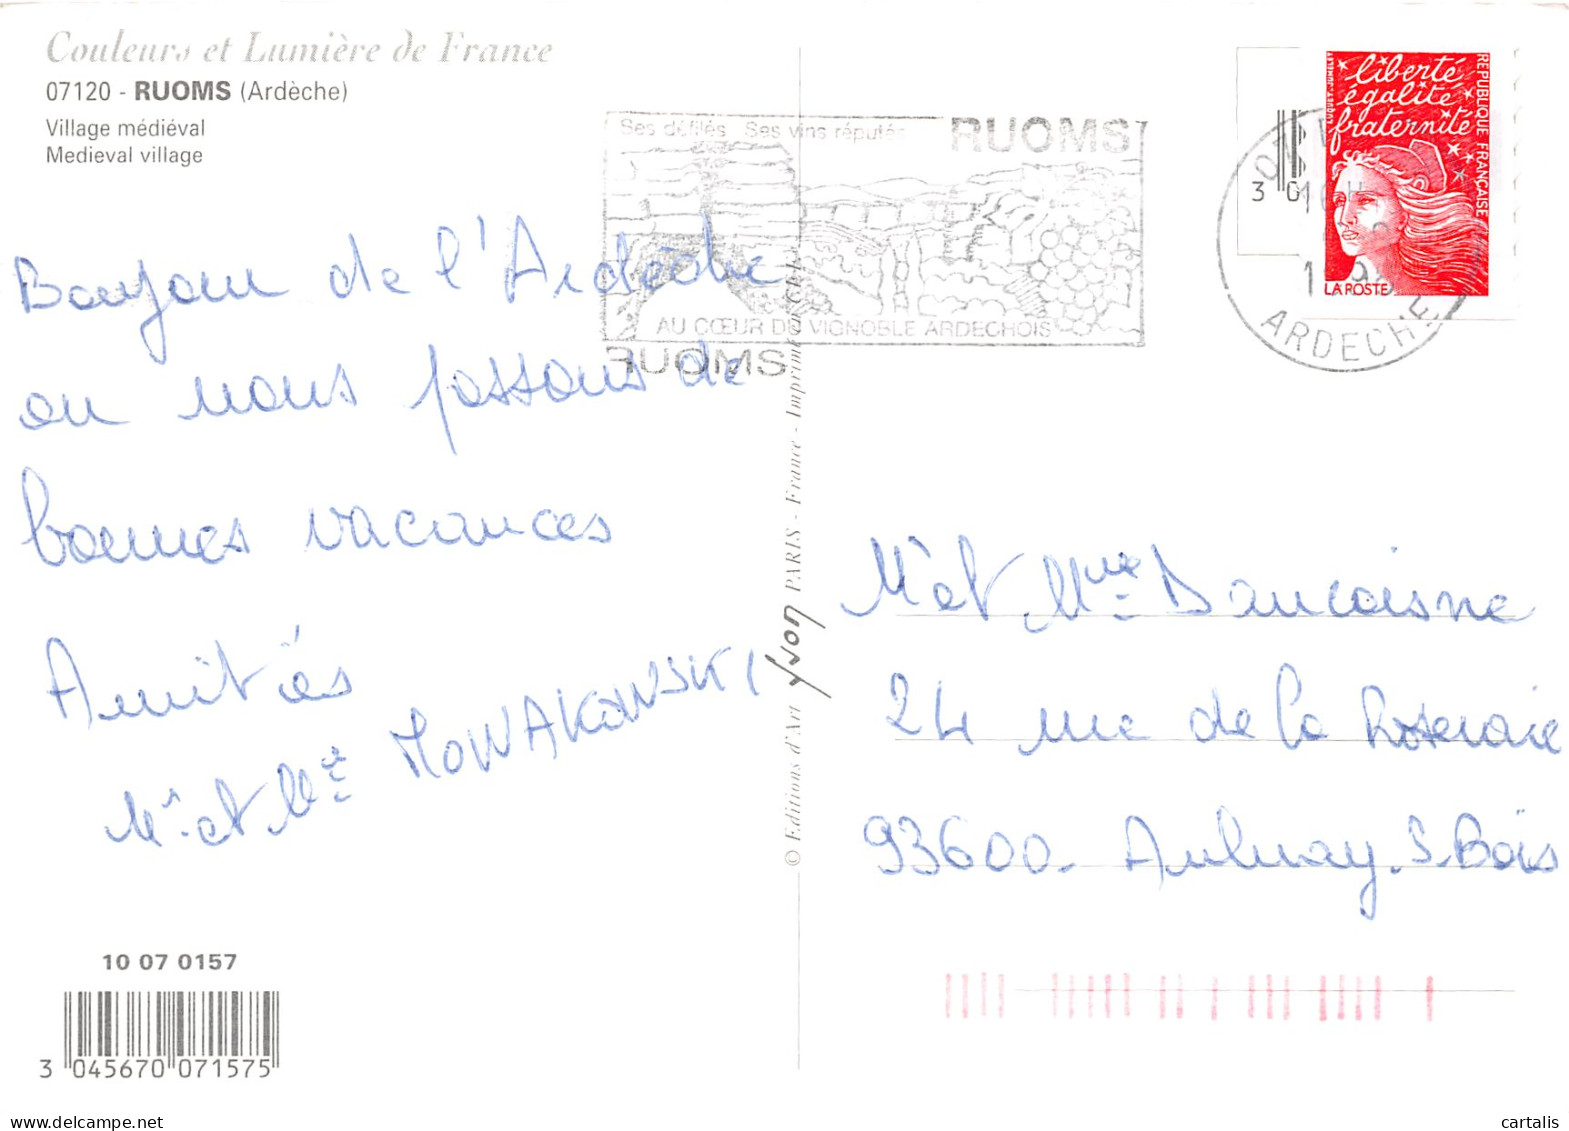 Couleurs et Lumière de France
07120 - RUOMS (Ardèche)
Village médiéval
Medieval village
Ses défilés Ses vins réputés RUOMS
AU CŒUR DU VIGNOBLE ARDECHOIS
RUOMS
liberté
égalité
fraternité
REPUBLIQUE FRANÇAISE
LA POSTE
ARDECHE
3 0
Bonjour de l'Ardèche
ou nous passons de
bonnes vacances
Amitiés
Mr et Mme NOWAKOWSKI
© Editions d'Art YVON PARIS - France - Imprimé en C.E.E.
Mr et Mme Daucoisne
24 rue de la Roseraie
93600 - Aulnay S. Bois
10 07 0157
3 045670 071575
cartalis